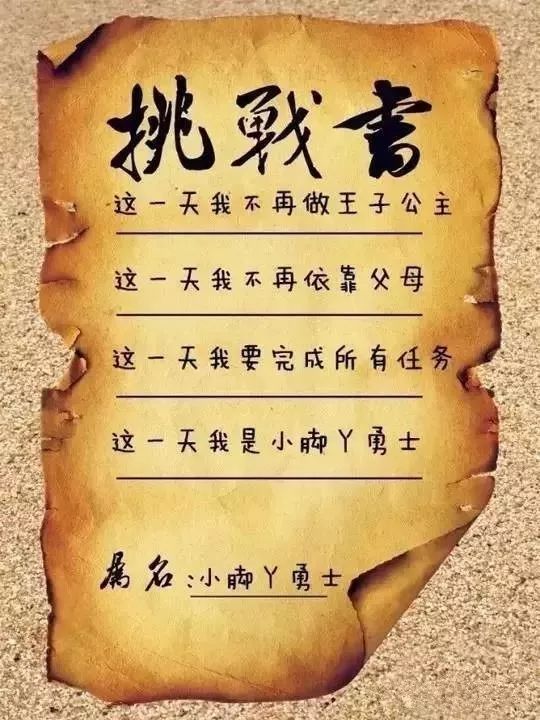 挑戰書
这一天我不再做王子公主
这一天我不再依靠父母
这一天我要完成所有任务
这一天我是小脚丫勇士
属名:小脚丫勇士